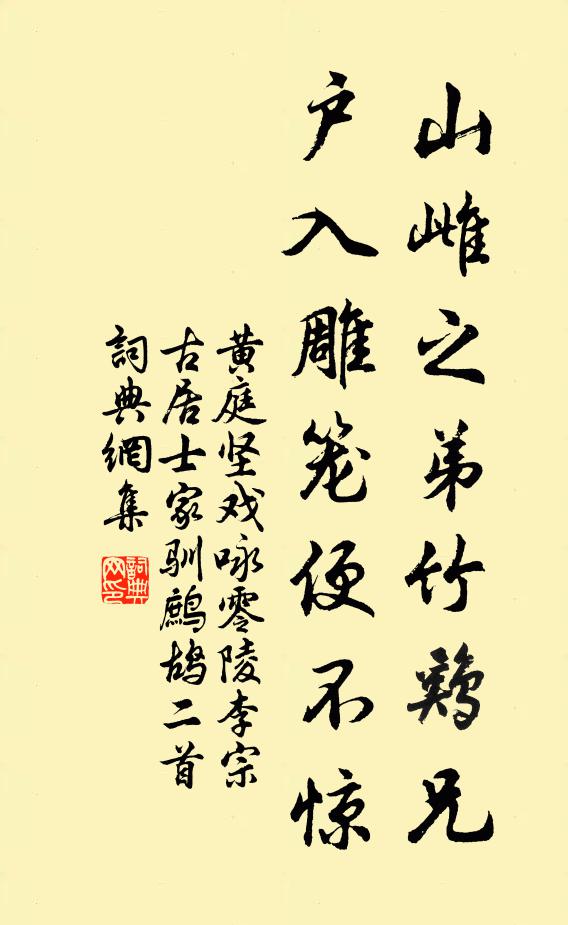 山雌之弟竹鷄兄
户入雕笼便不惊
黄庭坚戏咏零陵李宗
古居士家驯鹧鸪二首
詞典網集
詞典
网印